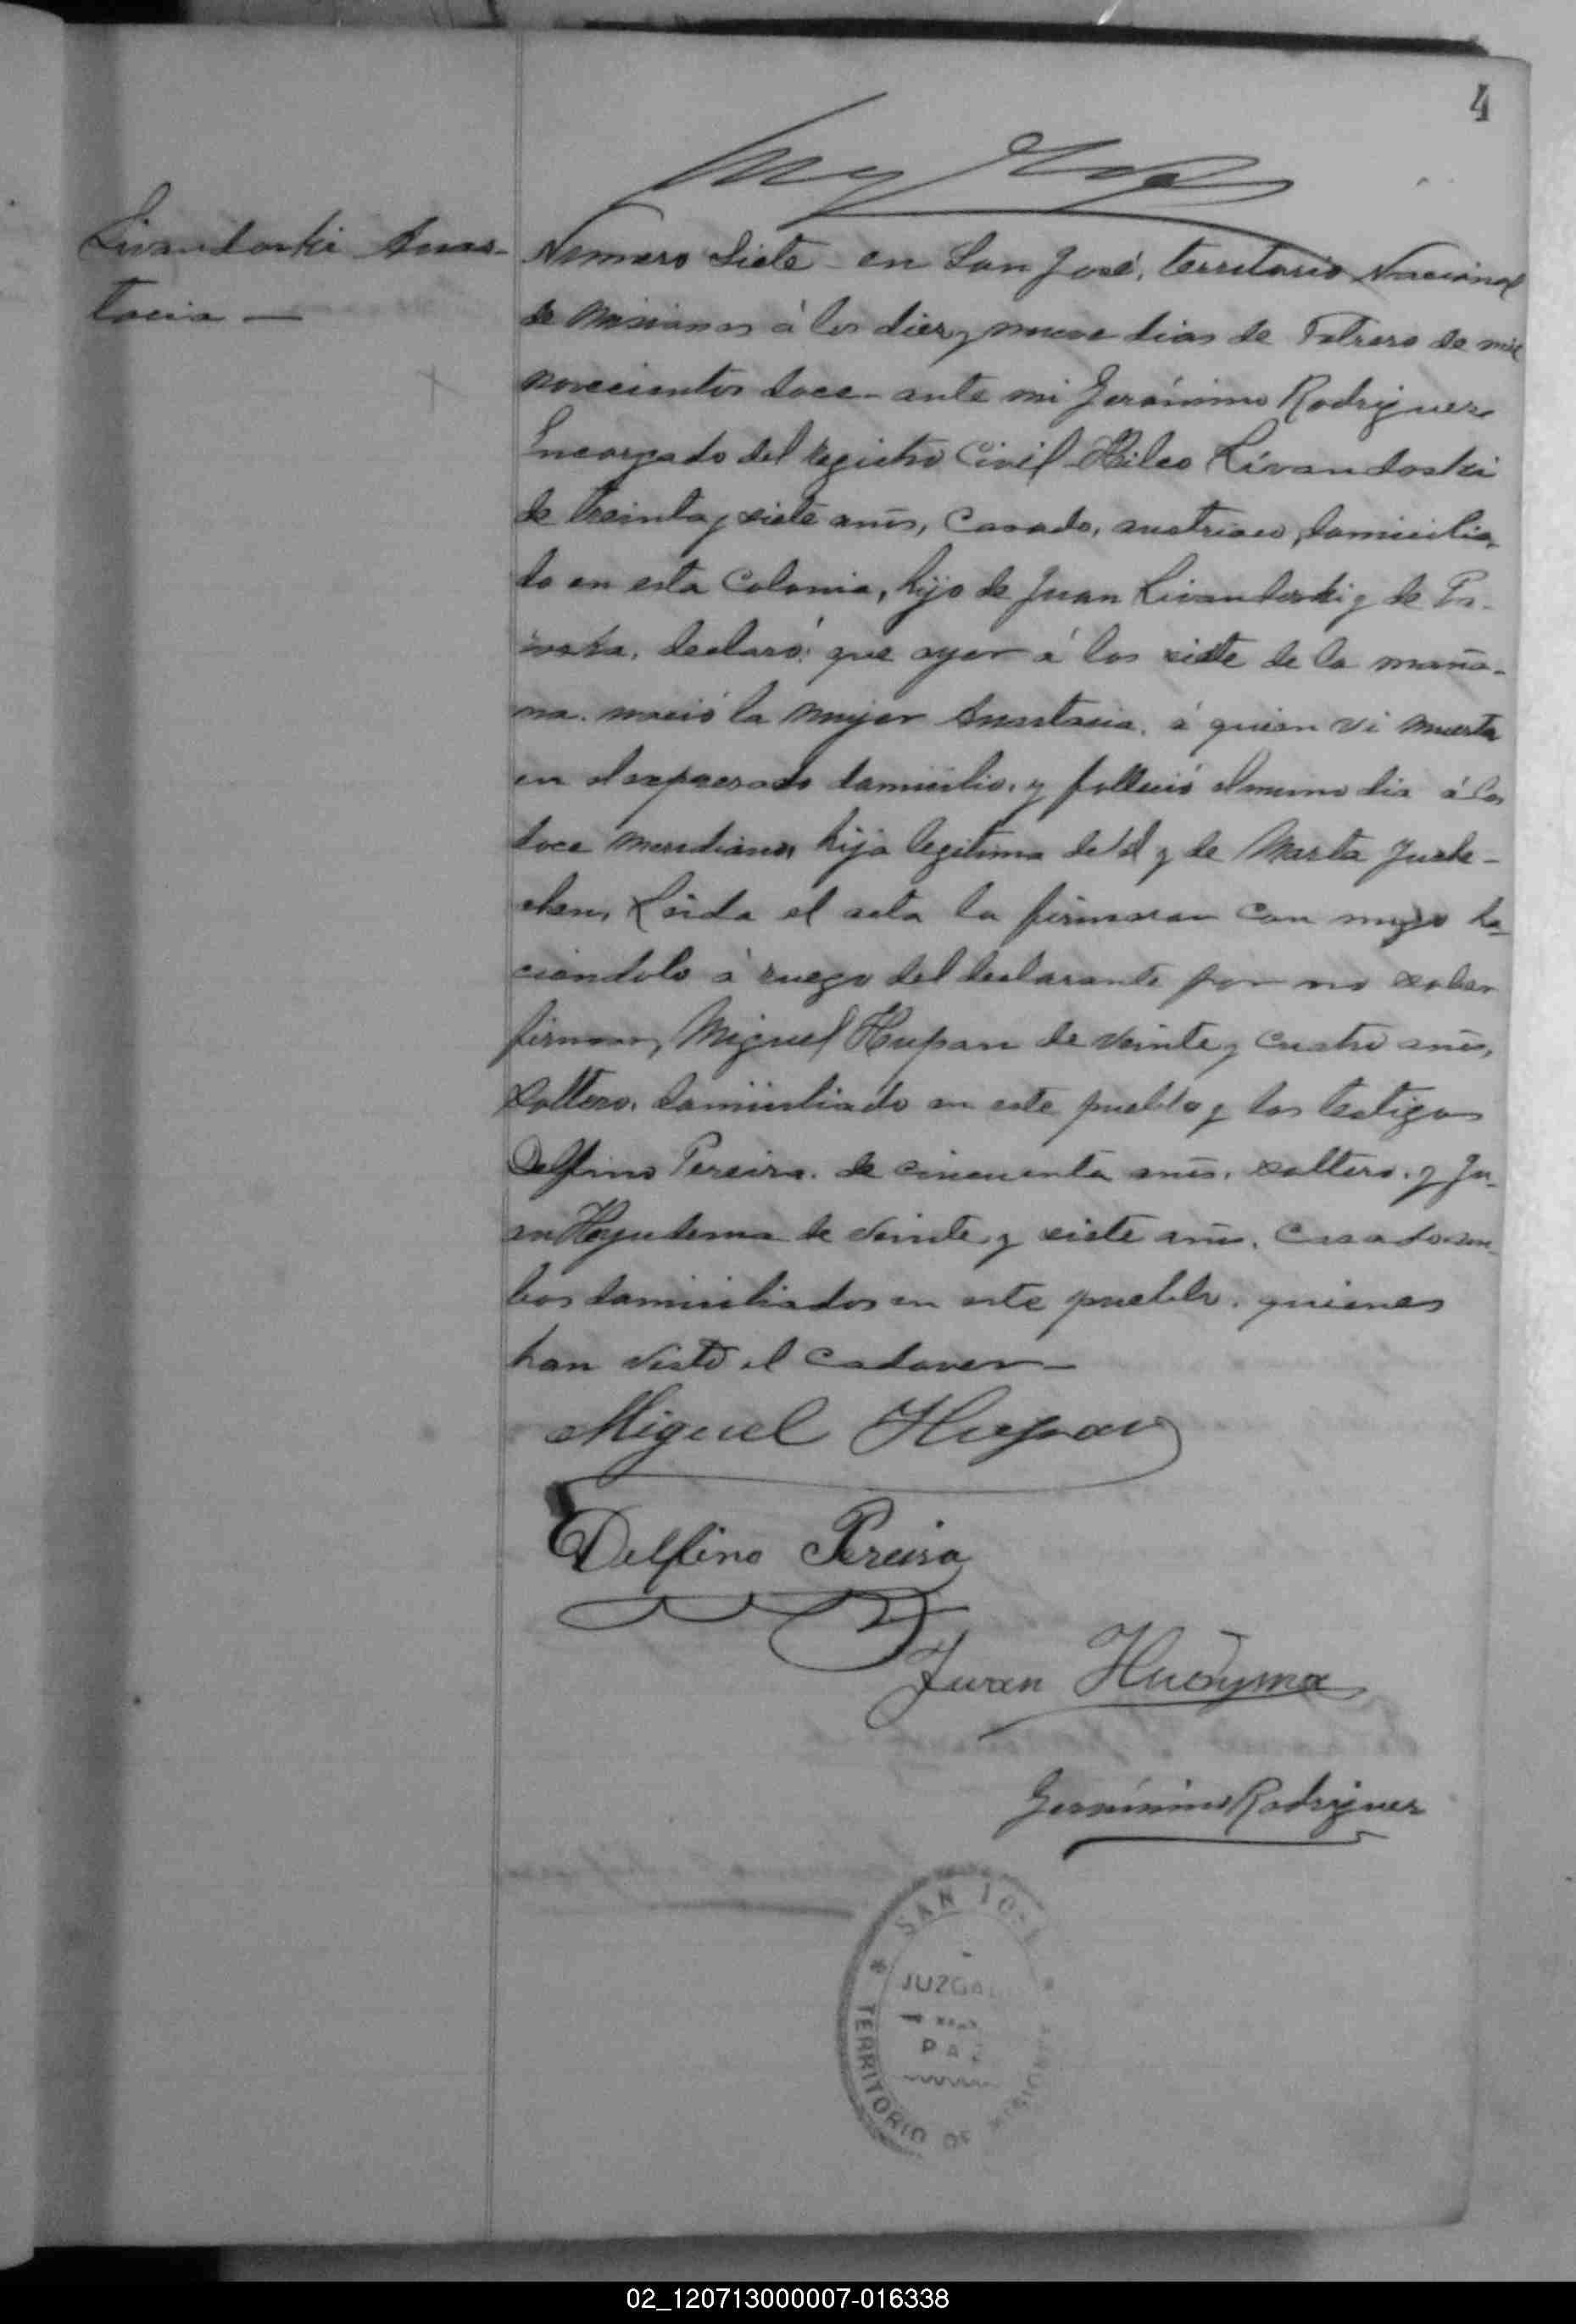 4
Livandoski Anas-
tacia —
Numero Siete - en San José, territorio Nacional
de Misiones á los diez y nueve dias de Febrero de mil
novecientos doce - ante mi Gerónimo Rodriguez
Encargado del Registro Civil - Hilco Livandoski
de treinta y siete años, casado, austriaco, domicilia-
do en esta Colonia, hijo de Juan Livandoski y de Pa-
raska, declaró: que ayer á las siete de la maña-
na. nació la mujer Anastacia. á quien vi muerta
en el expresado domicilio. y falleció el mismo dia á las
doce meridiano, hija legitima de él y de Marta
Leida el acta la firmaron con migo ha-
ciendolo á ruego del declarante por no saber
firmar, Miguel Hupan de veinte y cuatro años,
soltero, domiciliado en este pueblo y los testigos
Delfino Pereira. de cincuenta años. soltero. y Ju-
an de veinte y siete años. casado am-
bos domiciliados en este pueblo. quienes
han visto el cadaver —
Miguel Hupan
Delfino Pereira
Juan Hudyma
Gerónimo Rodriguez
SAN JOSE
JUZGADO
PAZ
TERRITORIO DE MISIONES
02_120713000007-016338